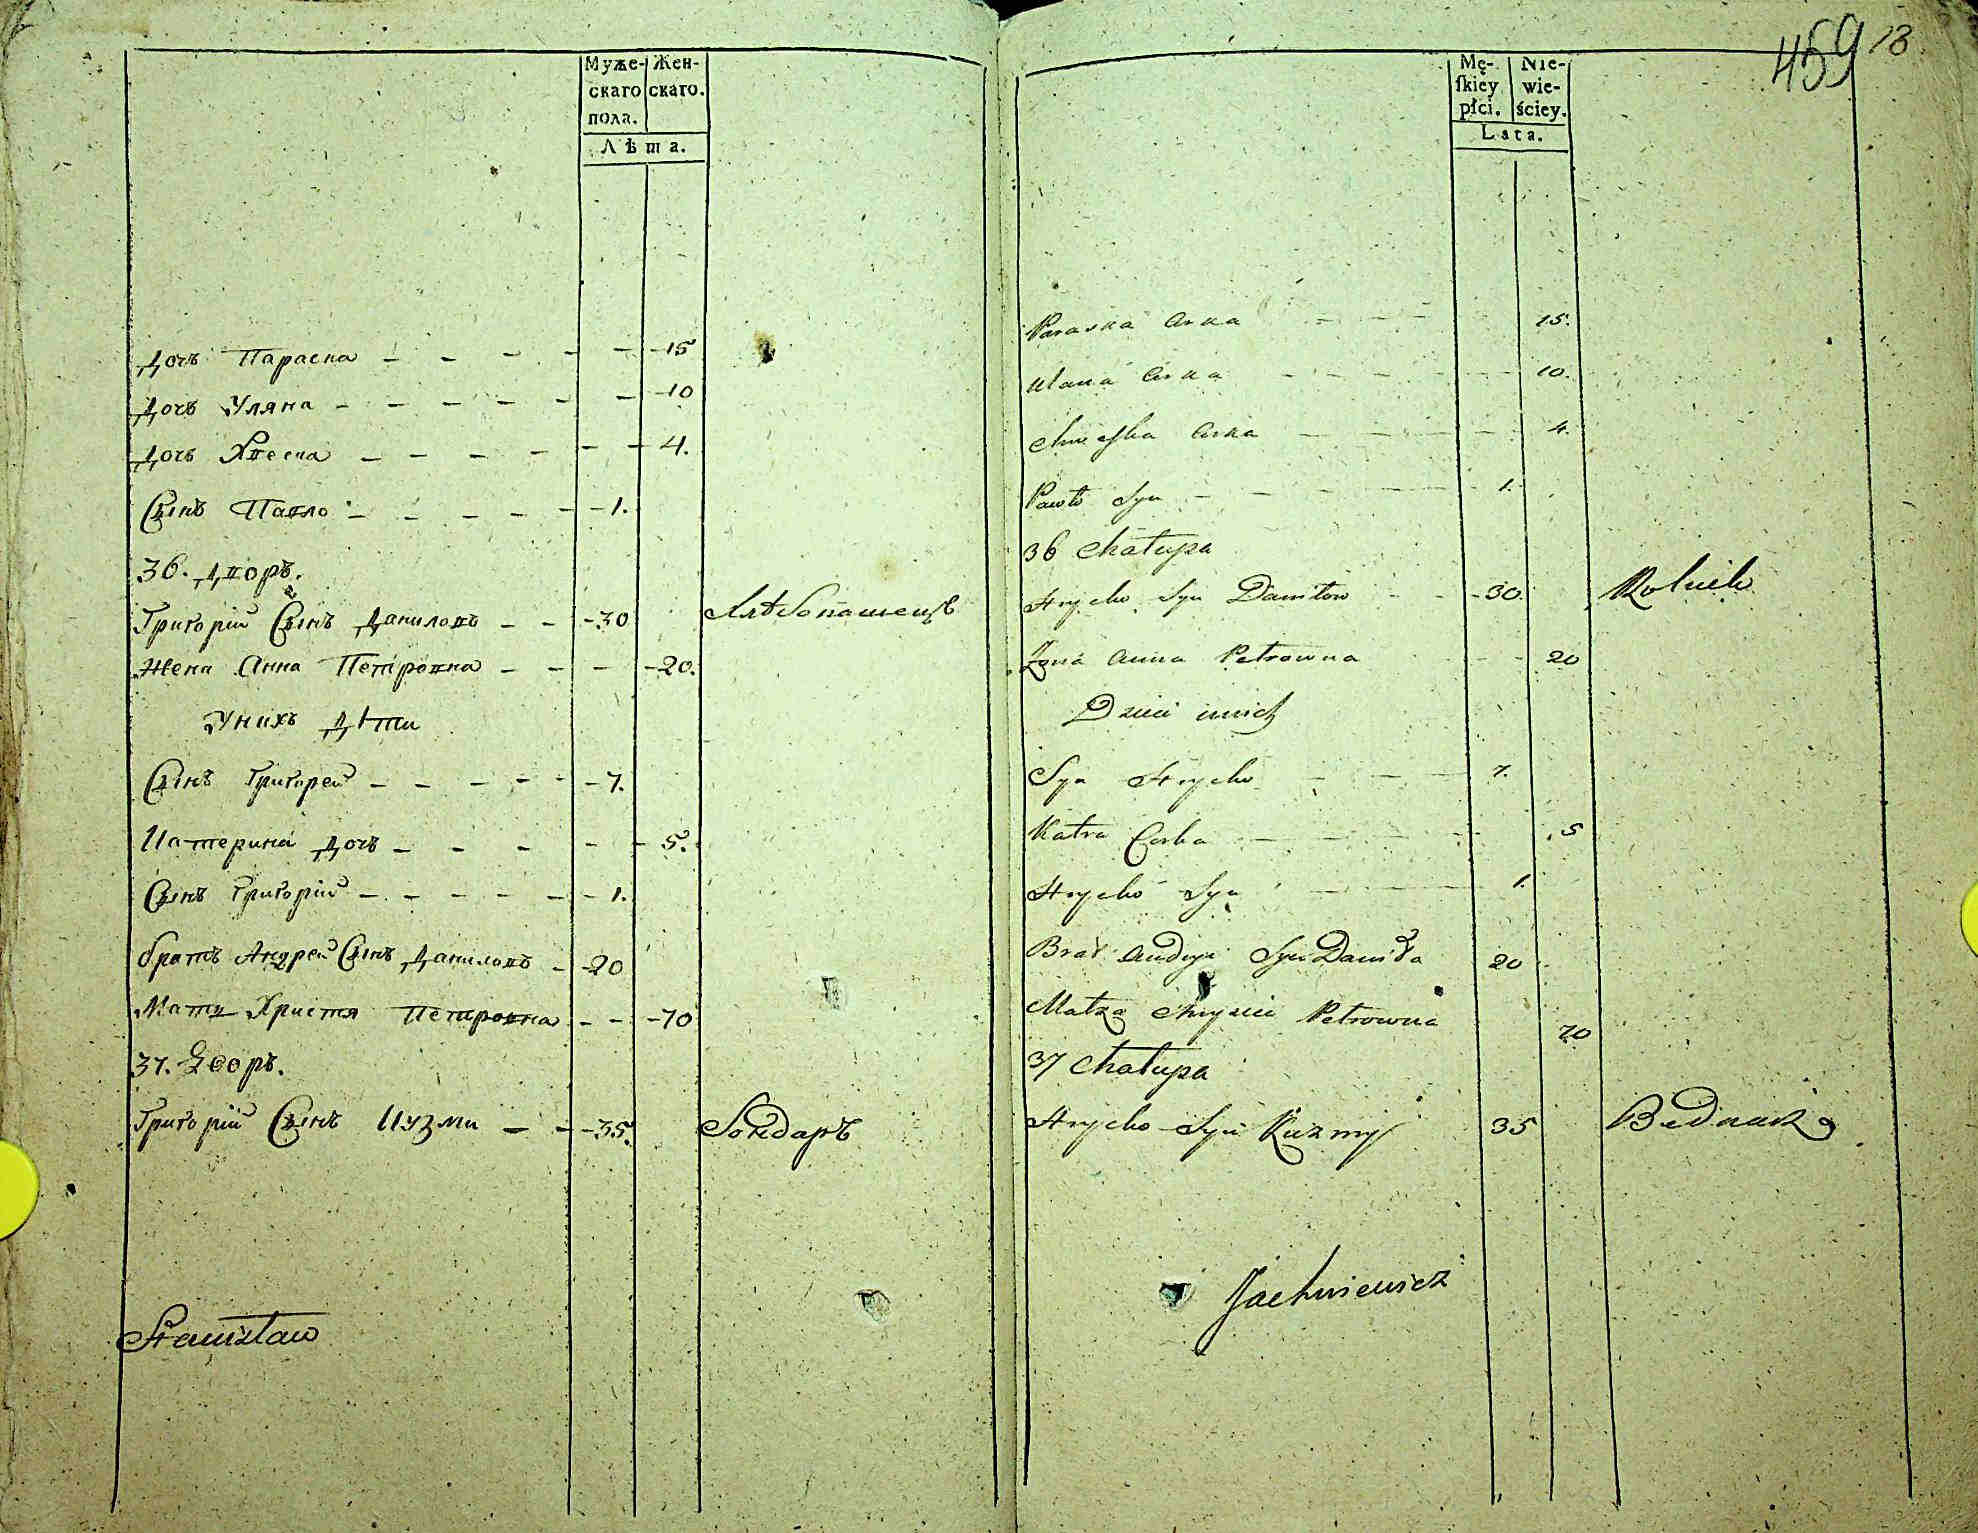 Муже- Жен-
скаго скаго.
пола.
Лѣта.
Дочь Параска — — — — — 15
Дочь Уляна — — — — — — 10
Дочь Хвеска — — — — — — 4.
Сынъ Павло — — — — — 1.
36. Дворъ.
Григорий Сынъ Даниловъ — — 30 Хлѣбопашецъ
Жена Анна Петровна — — — 20.
Унихъ Дѣти
Сынъ Григорей — — — — — 7.
Катерина дочь — — — — — 5.
Сынъ Григорий — — — — — 1.
братъ Андрей Сынъ Даниловъ — 20
Мати Христя Петровна — — 70
37. Дворъ.
Григорий Сынъ Кузми — — 35. Бондаръ
Stanisław
459 13
Mę- Nie-
ſkiey wie-
płci. ściey.
Lata.
Paraska Curka — — — 15.
Ulana Curka — — — — — 10.
Chweſka Curka — — — — 4.
Pawło Syn — — — — — 1.
36 Chałupa
Hryćko Syn Daniłow — — 30. Rolnik
Żona Anna Petrowna — — 20
Dzieci unich
Syn Hryćko — — — 7.
Katra Corka — — — — — 5
Hryćko Syn — — — 1.
Brat Andryi Syn Daniła 20
Matka Chrycia Petrowna 70
37 Chałupa
Hryćko Syn Kuzmy 35 Bednarz
Jachniewicz